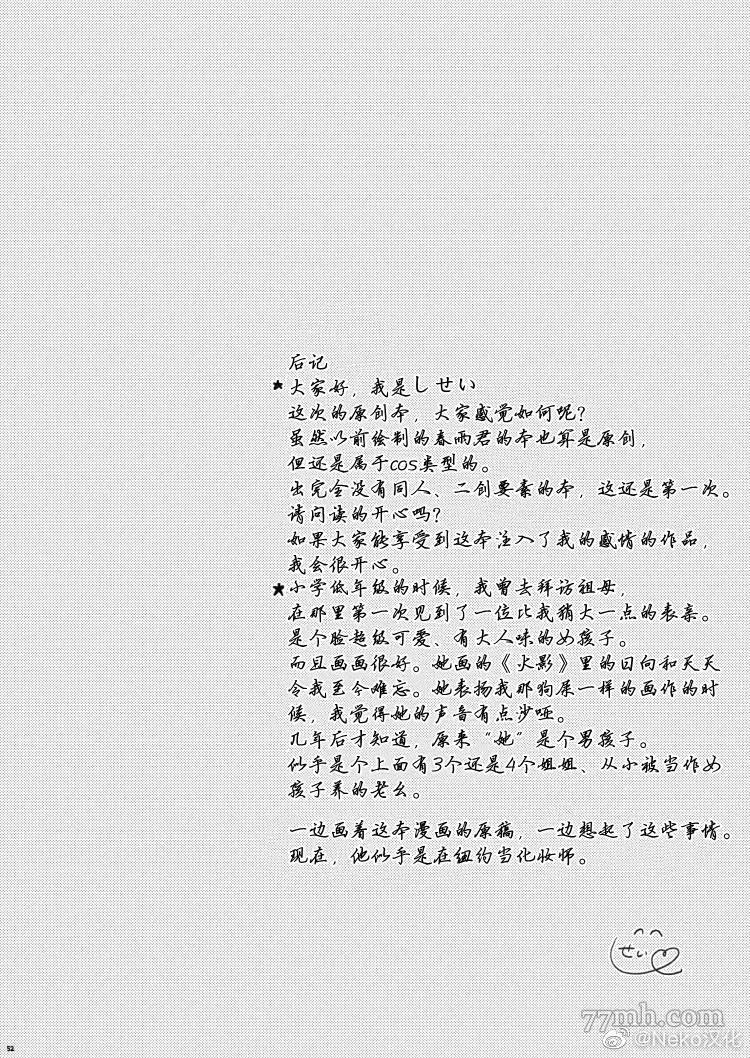 后记
★大家好，我是しせい
这次的原创本，大家感觉如何呢？
虽然以前绘制的春雨君的本也算是原创，
但还是属于cos类型的。
出完全没有同人、二创要素的本，这还是第一次。
请问读的开心吗？
如果大家能享受到这本注入了我的感情的作品，
我会很开心。
★小学低年级的时候，我曾去拜访祖母，
在那里第一次见到了一位比我稍大一点的表亲。
是个脸超级可爱、有大人味的女孩子。
而且画画很好。她画的《火影》里的日向和天天
令我至今难忘。她表扬我那狗屎一样的画作的时
候，我觉得她的声音有点沙哑。
几年后才知道，原来“她”是个男孩子。
似乎是个上面有3个还是4个姐姐、从小被当作女
孩子养的老幺。
一边画着这本漫画的原稿，一边想起了这些事情。
现在，他似乎是在纽约当化妆师。
せい
77mh.com
@Neko汉化
52